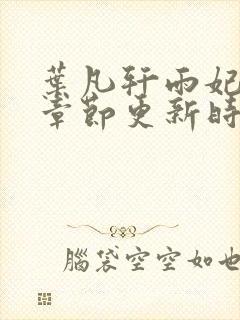 葉凡轩雨妃
章節更新時
腦袋空空如也